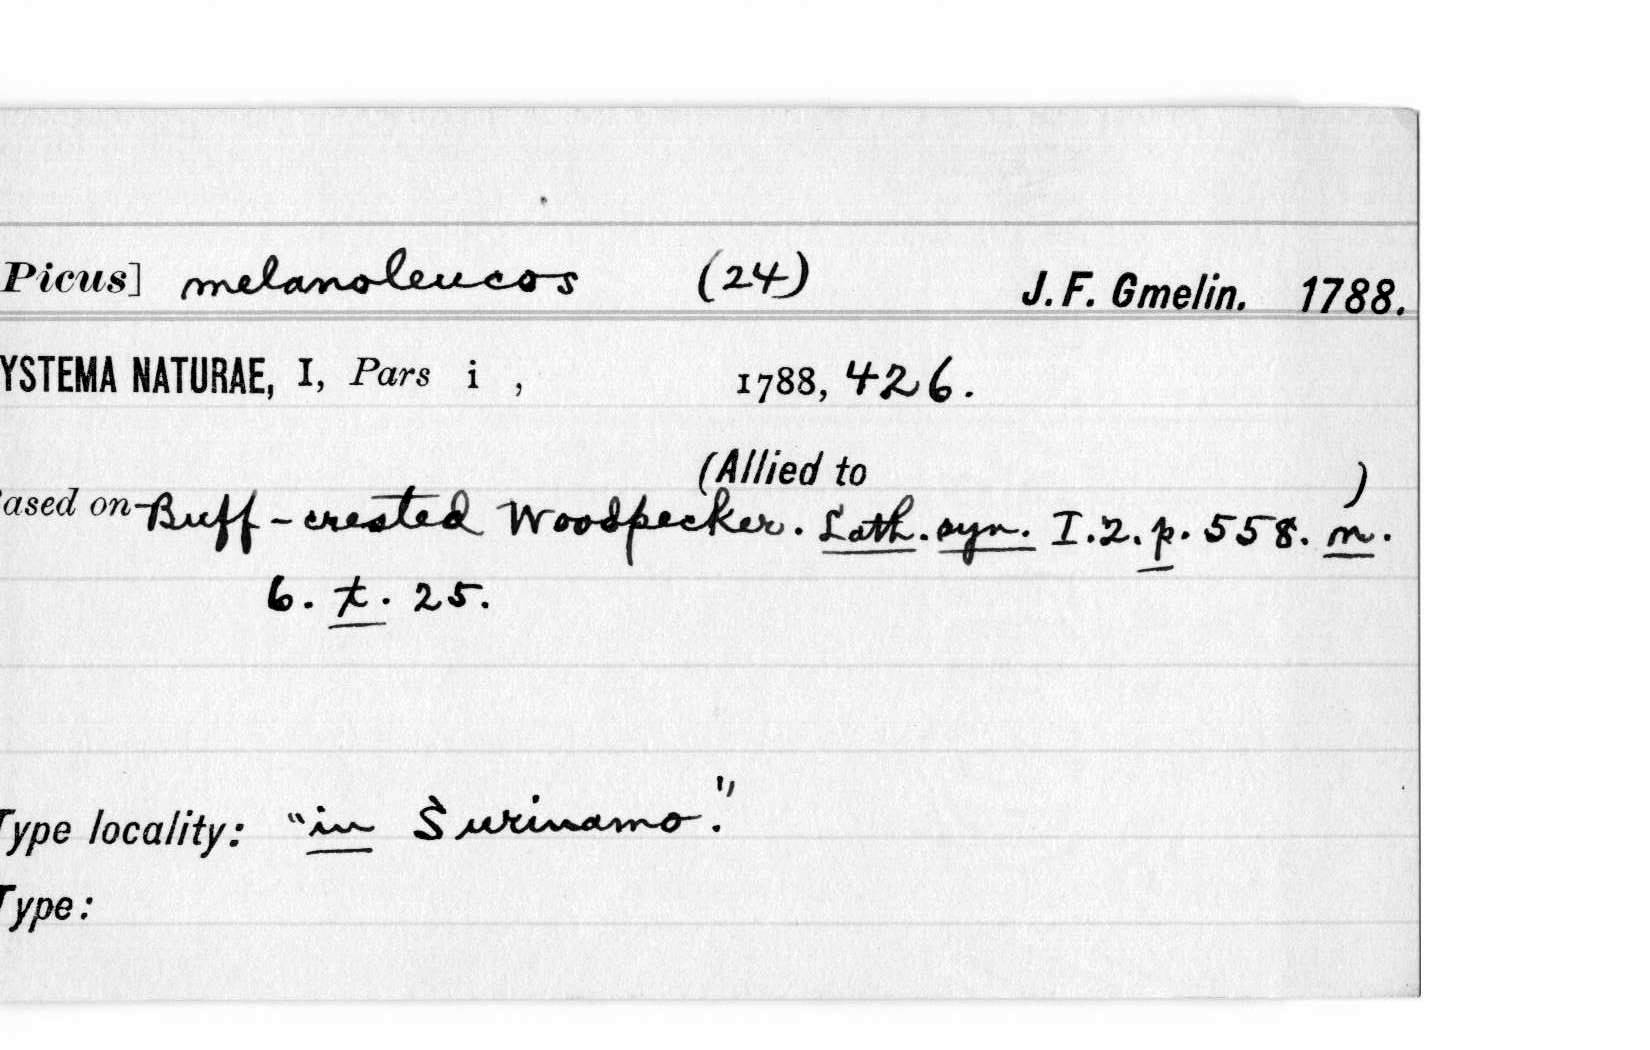 Picus] melanoleucos (24) J. F. Gmelin. 1788.
YSTEMA NATURAE, I, Pars i , 1788, 426.
(Allied to )
ased on Buff-crested Woodpecker. Lath. syn. I.2. p. 558. n.
6. t. 25.
Type locality: "in Surinamo."
Type: